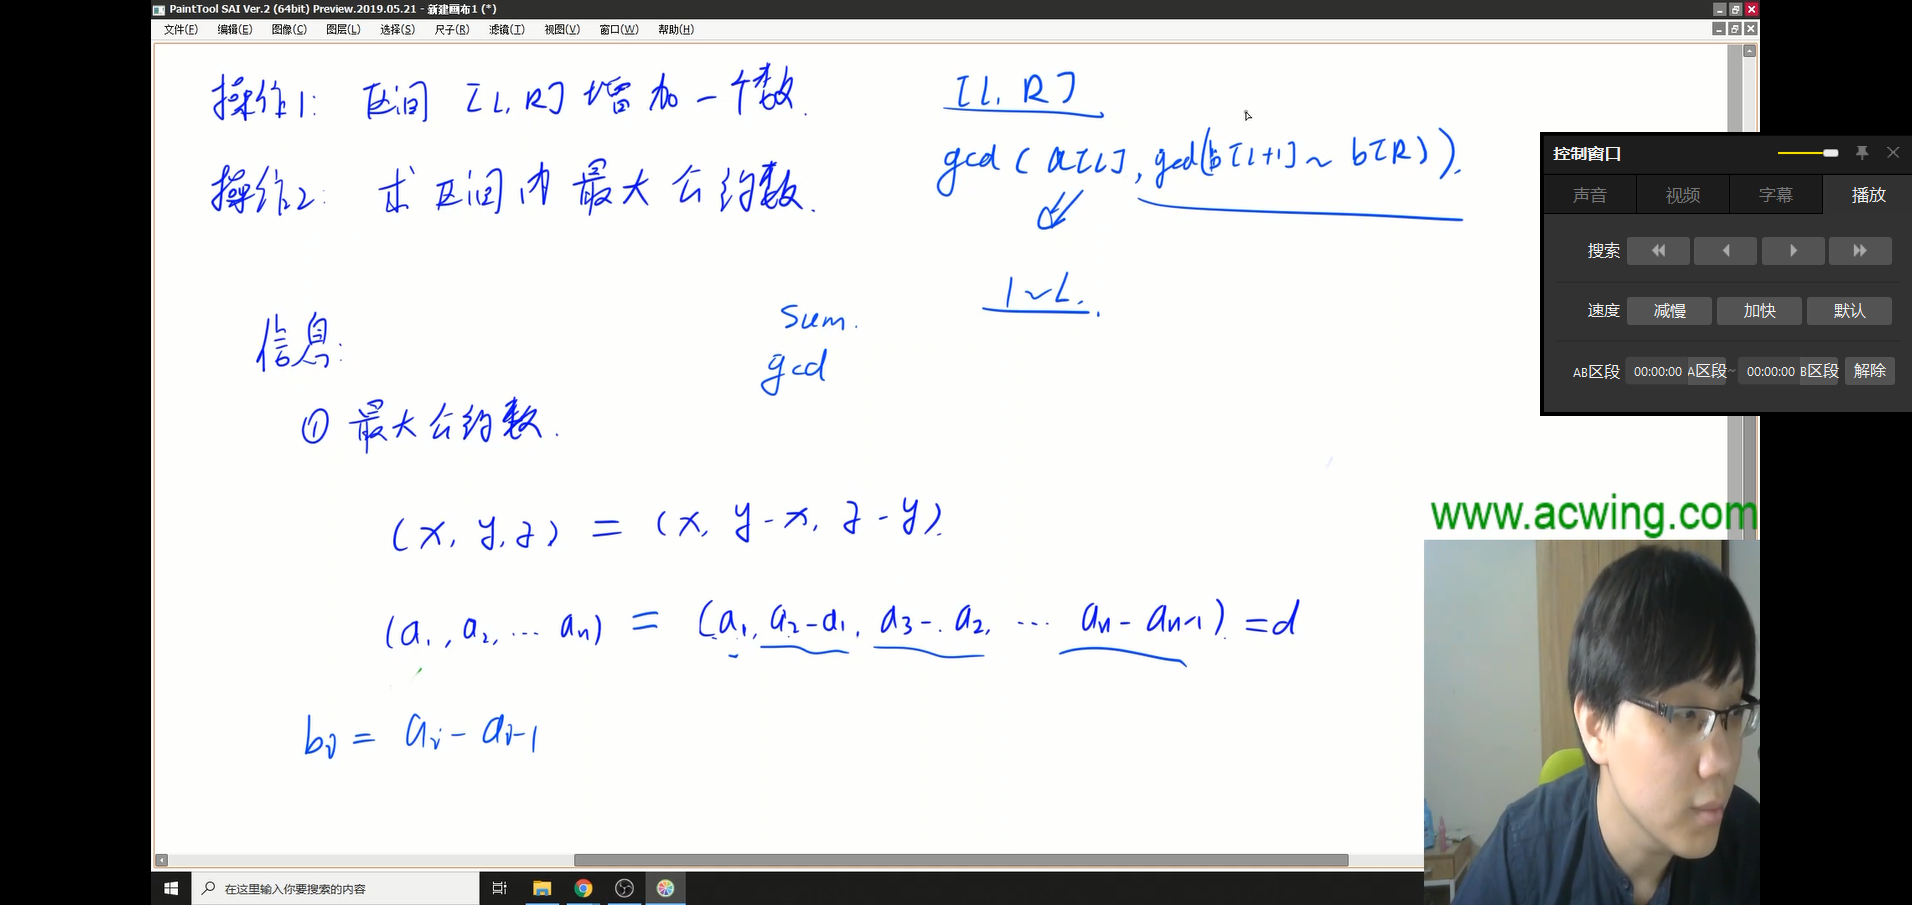 PaintTool SAI Ver.2 (64bit) Preview.2019.05.21 - 新建画布1 (*)
文件(F) 编辑(E) 图像(C) 图层(L) 选择(S) 尺子(R) 滤镜(T) 视图(V) 窗口(W) 帮助(H)
操作1: 区间 [L, R] 增加一个数.
操作2: 求区间内最大公约数.
信息:
① 最大公约数.
sum.
gcd
[L, R]
gcd(a[L], gcd(b[L+1]~b[R])).
1~L.
(x, y, z) = (x, y-x, z-y).
(a1, a2, ... an) = (a1, a2-a1, a3-a2, ... an-an-1) = d
bi = ai - ai-1
控制窗口
声音 视频 字幕 播放
搜索
速度 减慢 加快 默认
AB区段 00:00:00 A区段~ 00:00:00 B区段 解除
www.acwing.com
在这里输入你要搜索的内容